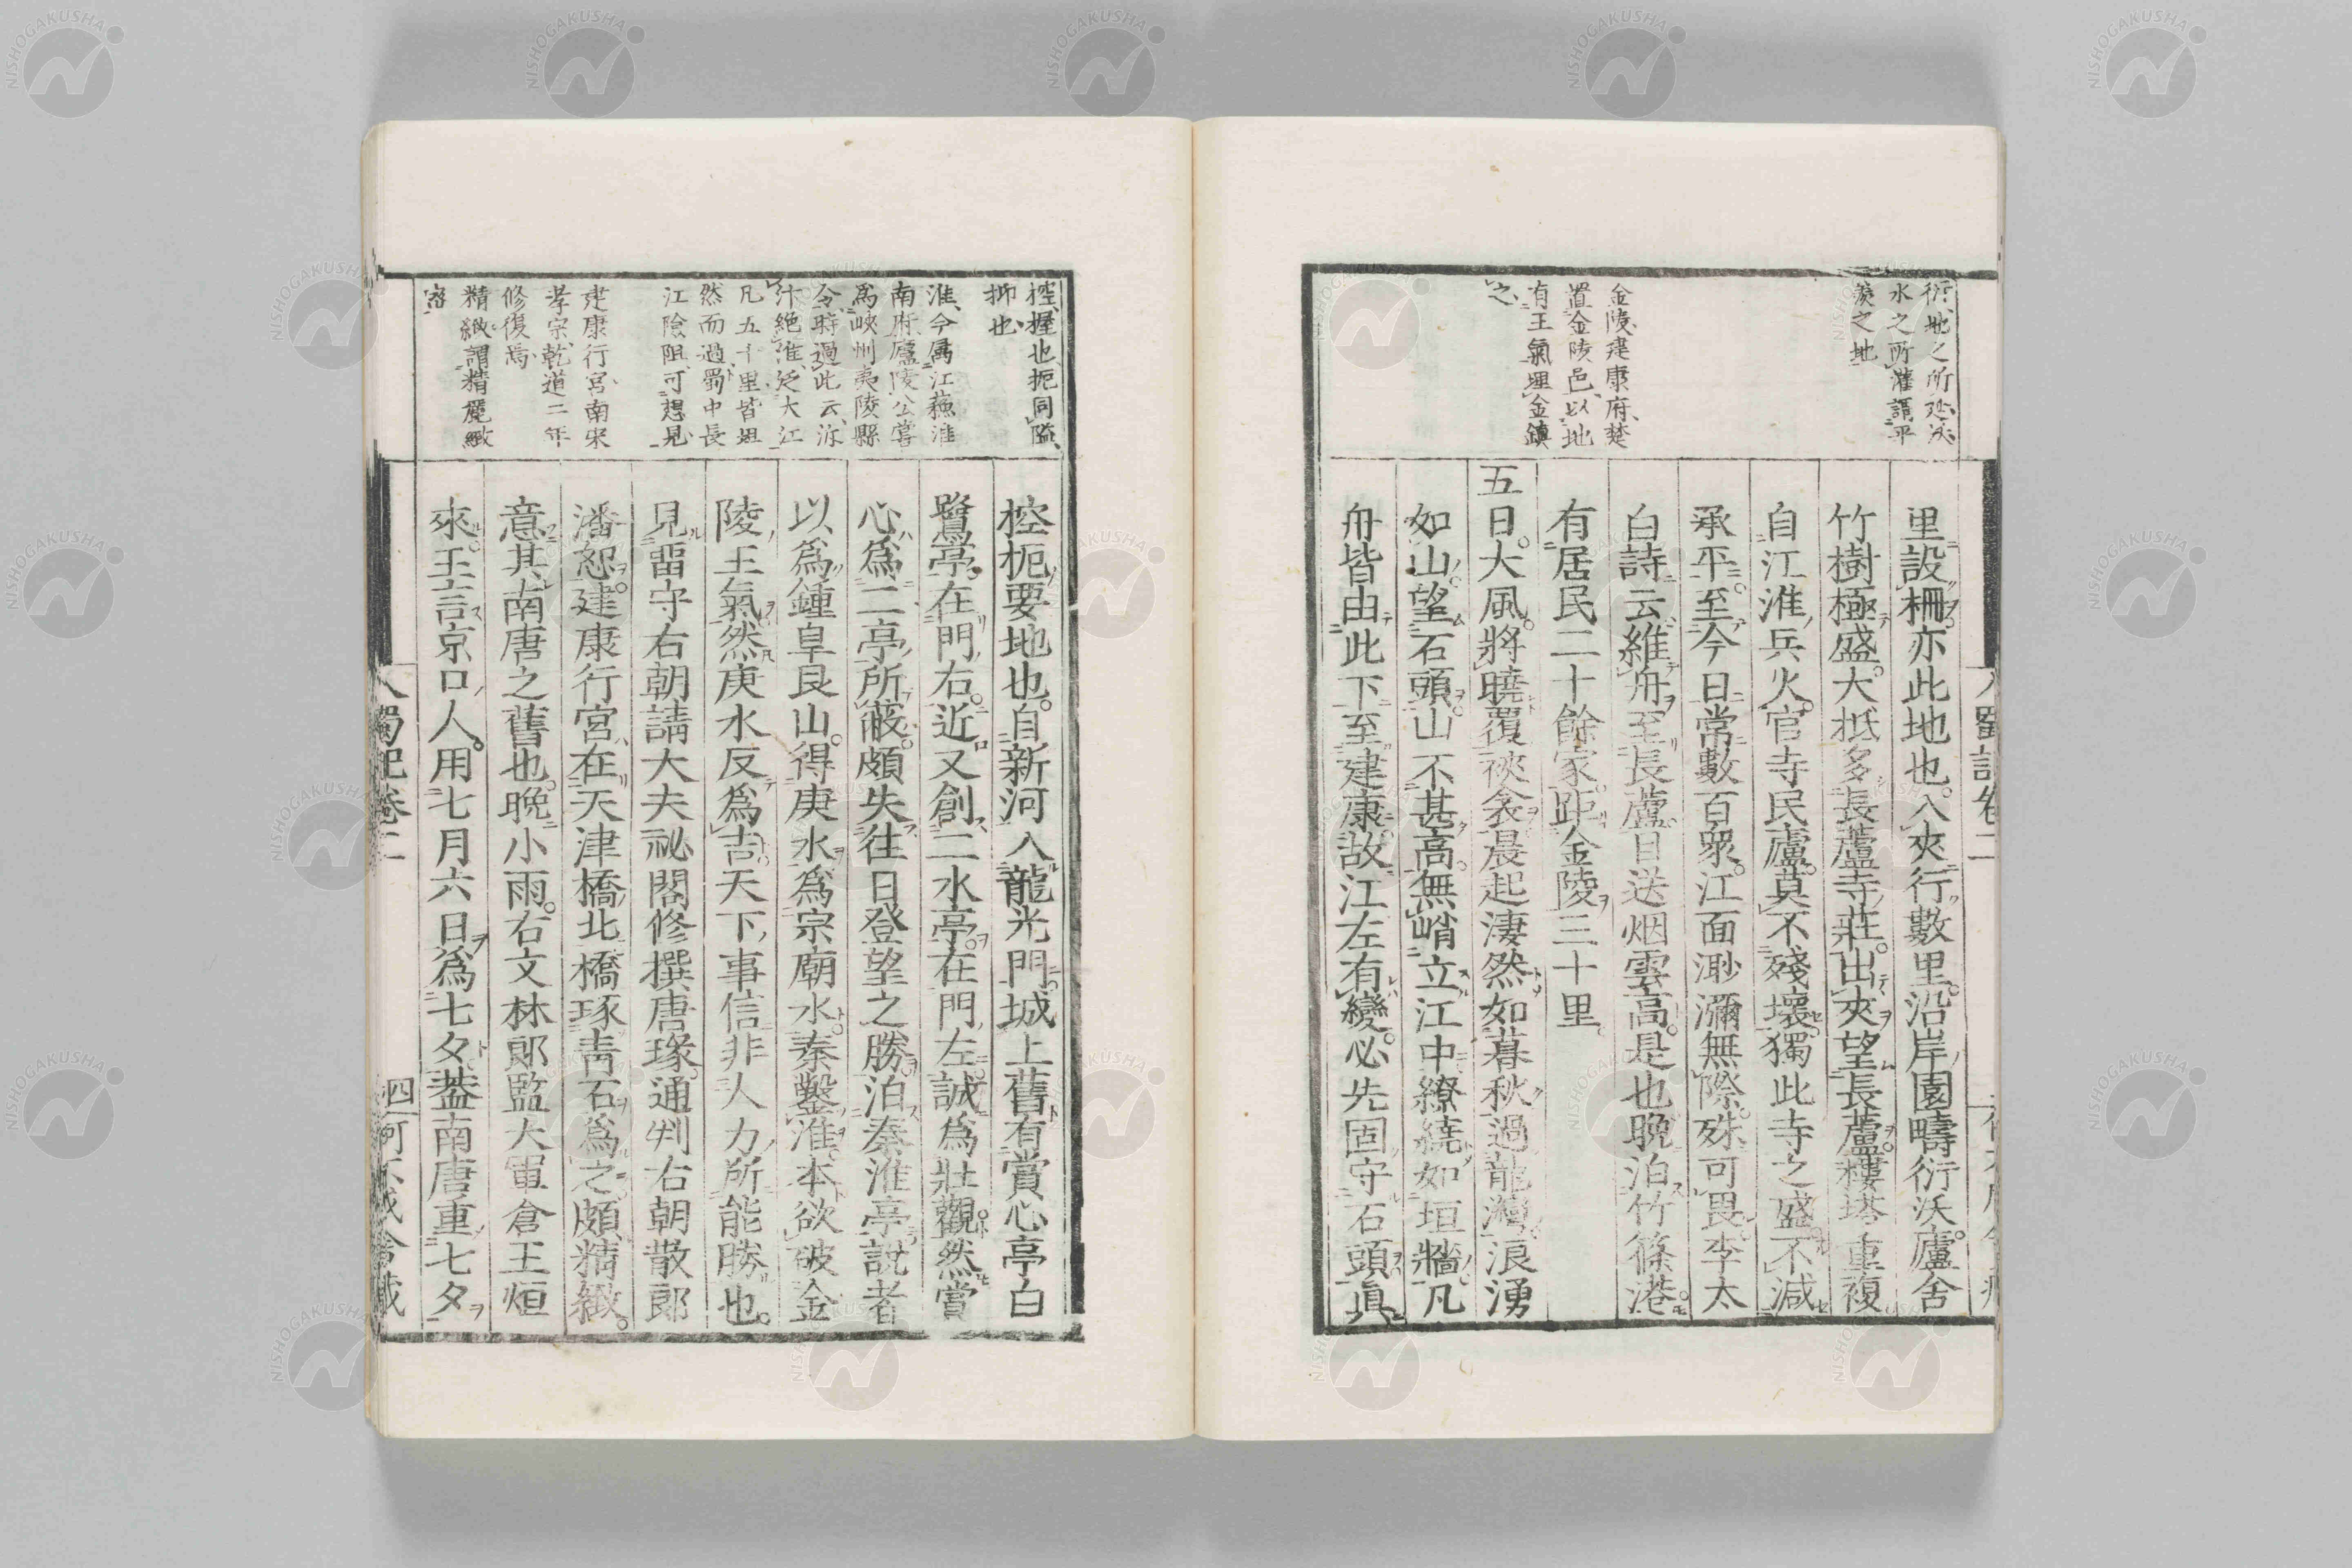 衍地之所延沃
水之所灌謂平
羨之地
金陵建康府楚
置金陵邑以地
有王氣埋金鎮
之
里設柵亦此地也入夾行數里沿岸園疇衍沃廬舍
竹樹極盛大抵多長蘆寺莊出夾望長蘆樓塔重複
自江淮兵火官寺民廬莫不殘壞獨此寺之盛不減
承平至今日常數百衆江面渺瀰無際殊可畏李太
白詩云維舟至長蘆目送烟雲高是也晩泊竹篠港
有居民二十餘家距金陵三十里
五日大風將曉覆裌衾晨起淒然如暮秋過龍灣浪湧
如山望石頭山不甚高無峭立江中繚繞如垣牆凡
舟皆由此下至建康故江左有變必先固守石頭真
控握也扼同隘
抑也
淮今屬江蘇淮
南府廬陵公嘗
爲峽州夷陵縣
令時過此云泝
汴絕淮泛大江
凡五千里皆
然而過蜀中長
江險阻可想見
建康行宮南宋
孝宗乾道二年
修復焉
精緻謂精麗緻
密
控扼要地也自新河入龍光門城上舊有賞心亭白
鷺亭在門右近又創二水亭在門左誠爲壯觀然賞
心爲二亭所蔽頗失往日登望之勝泊秦淮亭說者
以爲鍾阜艮山得庚水爲宗廟水秦鑿淮本欲破金
陵王氣然庚水反爲吉天下事信非人力所能勝也
見留守右朝請大夫祕閣修撰唐瑑通判右朝散郎
潘恕建康行宮在天津橋北橋琢靑石爲之頗精緻
意其南唐之舊也晩小雨右文林郎監大軍倉王烜
來王言京口人用七月六日爲七夕葢南唐重七夕
蜀記卷二
四